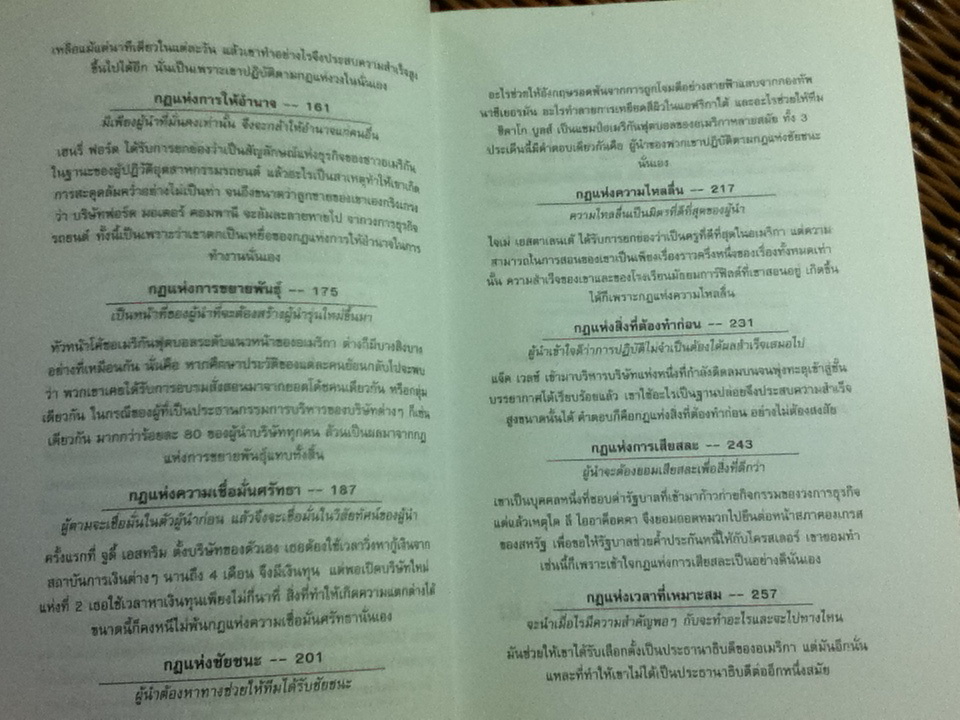 เหลือแม้แต่นาทีเดียวในแต่ละวัน แล้วเขาทำอย่างไรจึงประสบความสำเร็จสูง
ขึ้นไปได้อีก นั่นเป็นเพราะเขาปฏิบัติตามกฎแห่งวงในนั่นเอง
กฎแห่งการให้อำนาจ -- 161
มีเพียงผู้นำที่มั่นคงเท่านั้น จึงจะกล้าให้อำนาจแก่คนอื่น
เฮนรี่ ฟอร์ด ได้รับการยกย่องว่าเป็นสัญลักษณ์แห่งธุรกิจของชาวอเมริกัน
ในฐานะของผู้ปฏิวัติอุตสาหกรรมรถยนต์ แล้วอะไรเป็นสาเหตุทำให้เขาเกิด
การสะดุดล้มคว่ำอย่างไม่เป็นท่า จนถึงขนาดว่าลูกชายของเขาเองกริ่งเกรง
ว่า บริษัทฟอร์ด มอเตอร์ คอมพานี จะล้มละลายหายไป จากวงการธุรกิจ
รถยนต์ ทั้งนี้เป็นเพราะว่าเขาตกเป็นเหยื่อของกฎแห่งการให้อำนาจในการ
ทำงานนั่นเอง
กฎแห่งการขยายพันธุ์ -- 175
เป็นหน้าที่ของผู้นำที่จะต้องสร้างผู้นำรุ่นใหม่ขึ้นมา
หัวหน้าโค้ชอเมริกันฟุตบอลระดับแนวหน้าของอเมริกา ต่างก็มีบางสิ่งบาง
อย่างที่เหมือนกัน นั่นคือ หากศึกษาประวัติของแต่ละคนย้อนกลับไปจะพบ
ว่า พวกเขาเคยได้รับการอบรมสั่งสอนมาจากยอดโค้ชคนเดียวกัน หรือกลุ่ม
เดียวกัน ในกรณีของผู้ที่เป็นประธานกรรมการบริหารของบริษัทต่างๆ ก็เช่น
เดียวกัน มากกว่าร้อยละ 80 ของผู้นำบริษัททุกคน ล้วนเป็นผลมาจากกฎ
แห่งการขยายพันธุ์แทบทั้งสิ้น
กฎแห่งความเชื่อมั่นศรัทธา -- 187
ผู้ตามจะเชื่อมั่นในตัวผู้นำก่อน แล้วจึงจะเชื่อมั่นในวิสัยทัศน์ของผู้นำ
ครั้งแรกที่ จูดี้ เอสทริม ตั้งบริษัทของตัวเอง เธอต้องใช้เวลาวิ่งหากู้เงินจาก
สถาบันการเงินต่างๆ นานถึง 4 เดือน จึงมีเงินทุน แต่พอเปิดบริษัทใหม่
แห่งที่ 2 เธอใช้เวลาหาเงินทุนเพียงไม่กี่นาที สิ่งที่ทำให้เกิดความแตกต่างได้
ขนาดนี้ก็คงหนีไม่พ้นกฎแห่งความเชื่อมั่นศรัทธานั่นเอง
กฎแห่งชัยชนะ -- 201
ผู้นำต้องหาทางช่วยให้ทีมได้รับชัยชนะ
อะไรช่วยให้อังกฤษรอดพ้นจากการถูกโจมตีอย่างสายฟ้าแลบจากกองทัพ
นาซีเยอรมัน อะไรทำลายการเหยียดสีผิวในแอฟริกาใต้ และอะไรช่วยให้ทีม
ชิคาโก บูลส์ เป็นแชมป์อเมริกันฟุตบอลของอเมริกาหลายสมัย ทั้ง 3
ประเด็นนี้มีคำตอบเดียวกันคือ ผู้นำของพวกเขาปฏิบัติตามกฎแห่งชัยชนะ
นั่นเอง
กฎแห่งความไหลลื่น -- 217
ความไหลลื่นเป็นมิตรที่ดีที่สุดของผู้นำ
ไจเม่ เอสตาเลนเต้ ได้รับการยกย่องว่าเป็นครูที่ดีที่สุดในอเมริกา แต่ความ
สามารถในการสอนของเขาเป็นเพียงเรื่องราวครึ่งหนึ่งของเรื่องทั้งหมดเท่า
นั้น ความสำเร็จของเขาและของโรงเรียนมัธยมการ์ฟิลด์ที่เขาสอนอยู่ เกิดขึ้น
ได้ก็เพราะกฎแห่งความไหลลื่น
กฎแห่งสิ่งที่ต้องทำก่อน -- 231
ผู้นำเข้าใจดีว่าการปฏิบัติไม่จำเป็นต้องได้ผลสำเร็จเสมอไป
แจ๊ค เวลช์ เข้ามาบริหารบริษัทแห่งหนึ่งที่กำลังติดลมบนจนพุ่งทะลุเข้าสู่ชั้น
บรรยากาศได้เรียบร้อยแล้ว เขาใช้อะไรเป็นฐานปล่อยจึงประสบความสำเร็จ
สูงขนาดนั้นได้ คำตอบก็คือกฎแห่งสิ่งที่ต้องทำก่อน อย่างไม่ต้องสงสัย
กฎแห่งการเสียสละ -- 243
ผู้นำจะต้องยอมเสียสละเพื่อสิ่งที่ดีกว่า
เขาเป็นบุคคลหนึ่งที่ชอบด่ารัฐบาลที่เข้ามาก้าวก่ายกิจกรรมของวงการธุรกิจ
แต่แล้วเหตุใด ลี ไออาค็อคคา จึงยอมถอดหมวกไปยืนต่อหน้าสภาคองเกรส
ของสหรัฐ เพื่อขอให้รัฐบาลช่วยค้ำประกันหนี้ให้กับไครสเลอร์ เขายอมทำ
เช่นนี้ก็เพราะเข้าใจกฎแห่งการเสียสละเป็นอย่างดีนั่นเอง
กฎแห่งเวลาที่เหมาะสม -- 257
จะนำเมื่อไรมีความสำคัญพอๆ กับจะทำอะไรและจะไปทางไหน
มันช่วยให้เขาได้รับเลือกตั้งเป็นประธานาธิบดีของอเมริกา แต่มันอีกนั่น
แหละที่ทำให้เขาไม่ได้เป็นประธานาธิบดีต่ออีกหนึ่งสมัย